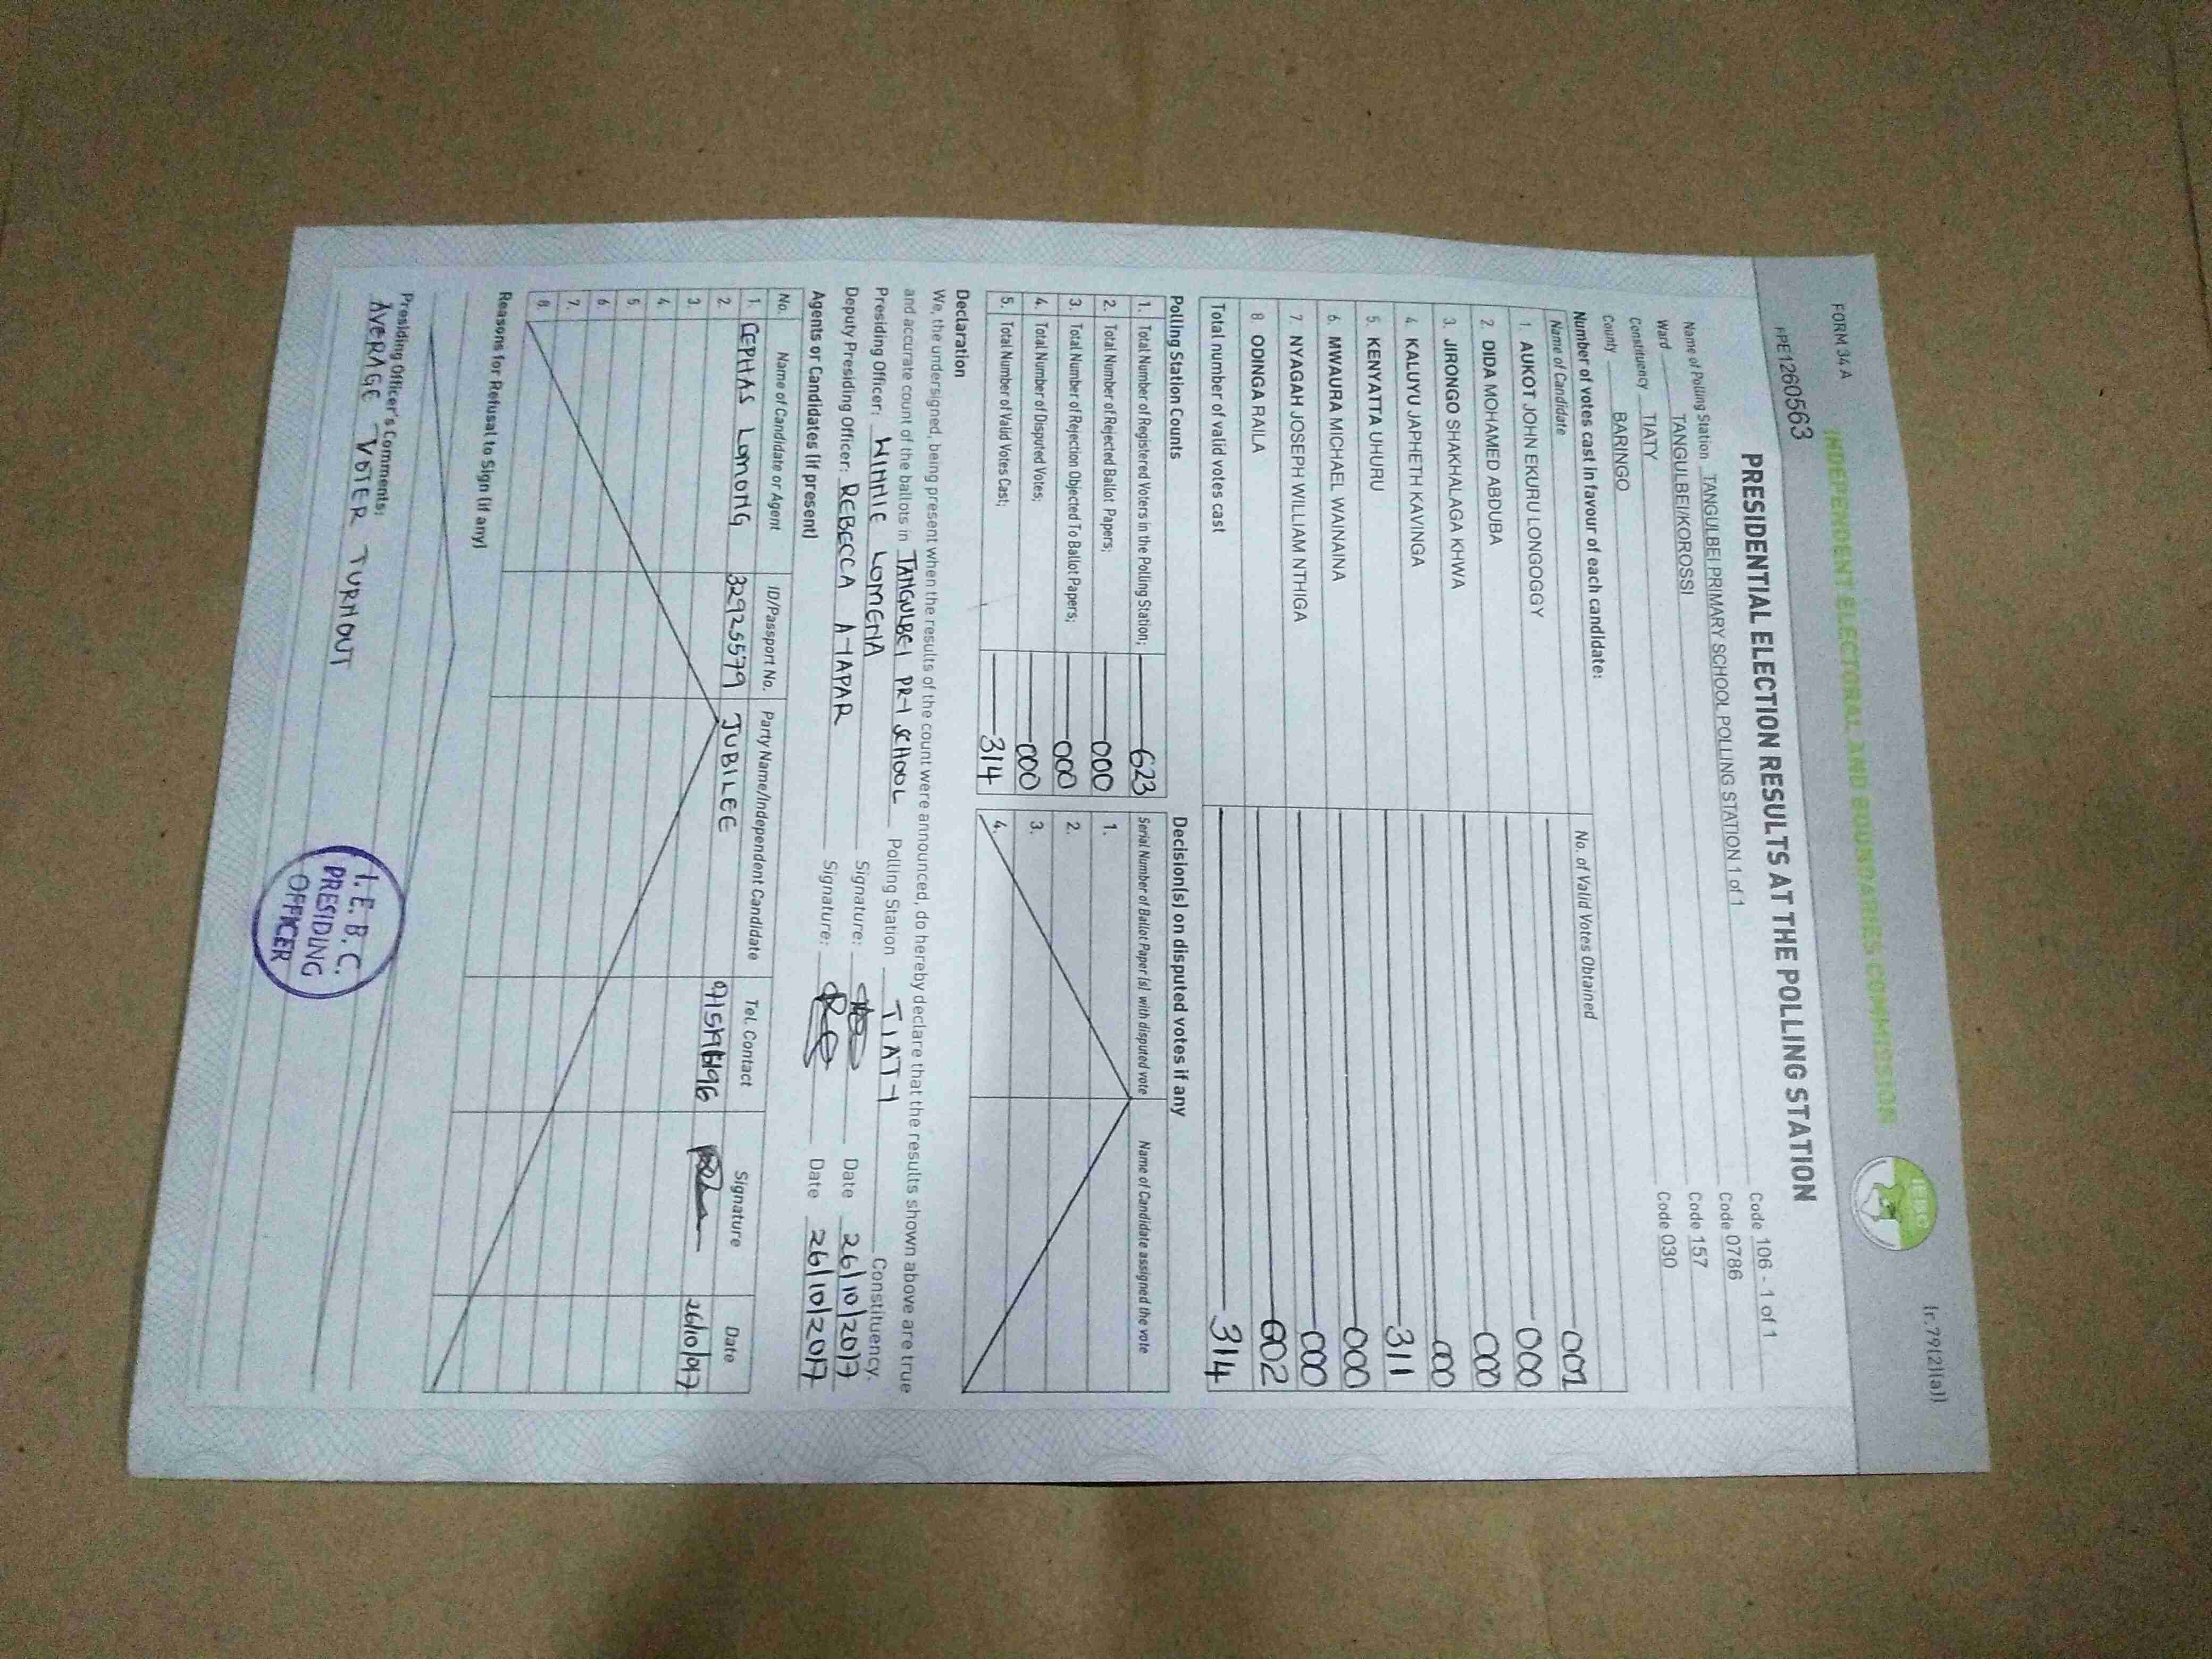 FORM 34 A
(r.79(2)(a))
INDEPENDENT ELECTORAL AND BOUNDARIES COMMISSION
IEBC
PE1260563
PRESIDENTIAL ELECTION RESULTS AT THE POLLING STATION
Name of Polling Station TANGULBEI PRIMARY SCHOOL POLLING STATION 1 of 1 Code 106 - 1 of 1
Ward TANGULBEI/KOROSSI Code 0786
Constituency TIATY Code 157
County BARINGO Code 030
Number of votes cast in favour of each candidate:
Name of Candidate No. of Valid Votes Obtained
1. AUKOT JOHN EKURU LONGOGGY 001
2. DIDA MOHAMED ABDUBA 000
3. JIRONGO SHAKHALAGA KHWA 000
4. KALUYU JAPHETH KAVINGA 000
5. KENYATTA UHURU 311
6. MWAURA MICHAEL WAINAINA 000
7. NYAGAH JOSEPH WILLIAM NTHIGA 000
8. ODINGA RAILA 002
Total number of valid votes cast 314
Polling Station Counts
1. Total Number of Registered Voters in the Polling Station; 623
2. Total Number of Rejected Ballot Papers; 000
3. Total Number of Rejection Objected To Ballot Papers; 000
4. Total Number of Disputed Votes; 000
5. Total Number of Valid Votes Cast; 314
Decision(s) on disputed votes if any
Serial Number of Ballot Paper(s) with disputed vote Name of Candidate assigned the vote
1.
2.
3.
4.
Declaration
We, the undersigned, being present when the results of the count were announced, do hereby declare that the results shown above are true
and accurate count of the ballots in TANGULBEI PRI SCHOOL Polling Station TIATY Constituency.
Presiding Officer: WINNIE LOMENA Signature: Date 26/10/2017
Deputy Presiding Officer: REBECCA Signature: Date 26/10/2017
Agents or Candidates (if present)
No. Name of Candidate or Agent ID/Passport No. Party Name/Independent Candidate Tel. Contact Signature Date
1. CEPHAS LOMONG 32925579 JUBILEE
2.
3.
4.
5.
6.
7.
8.
Reasons for Refusal to Sign (if any)
Presiding Officer's Comments:
AVERAGE VOTER TURNOUT
I. E. B. C.
PRESIDING
OFFICER